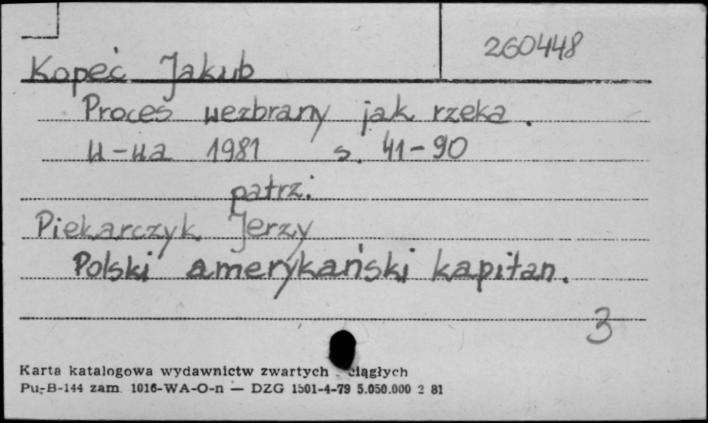 260448
Kopeć Jakub
Proces wezbrany jak rzeka.
W-wa 1981 s. 41-90
patrz:
Piekarczyk Jerzy
Polski amerykański kapitan.
3
Karta katalogowa wydawnictw zwartych ciągłych
Pu-B-144 zam. 1016-WA-O-n — DZG 1501-4-79 5.050.000 2 81